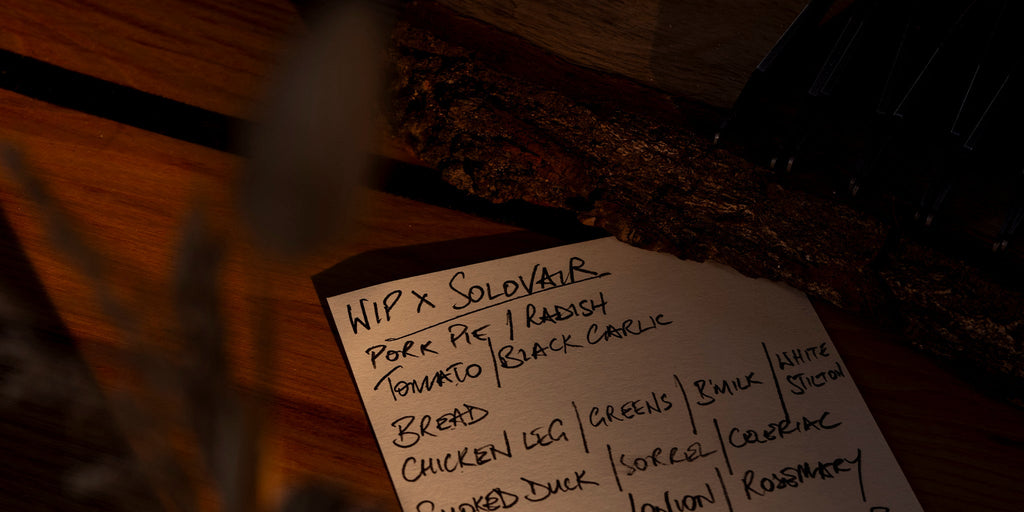 WIP X SOLOVAIR
PORK PIE / RADISH
TOMATO | BLACK GARLIC
BREAD
CHICKEN LEG | GREENS | B'MILK | WHITE STILTON
SMOKED DUCK | SORREL | CELERIAC
ONION | ROSEMARY |